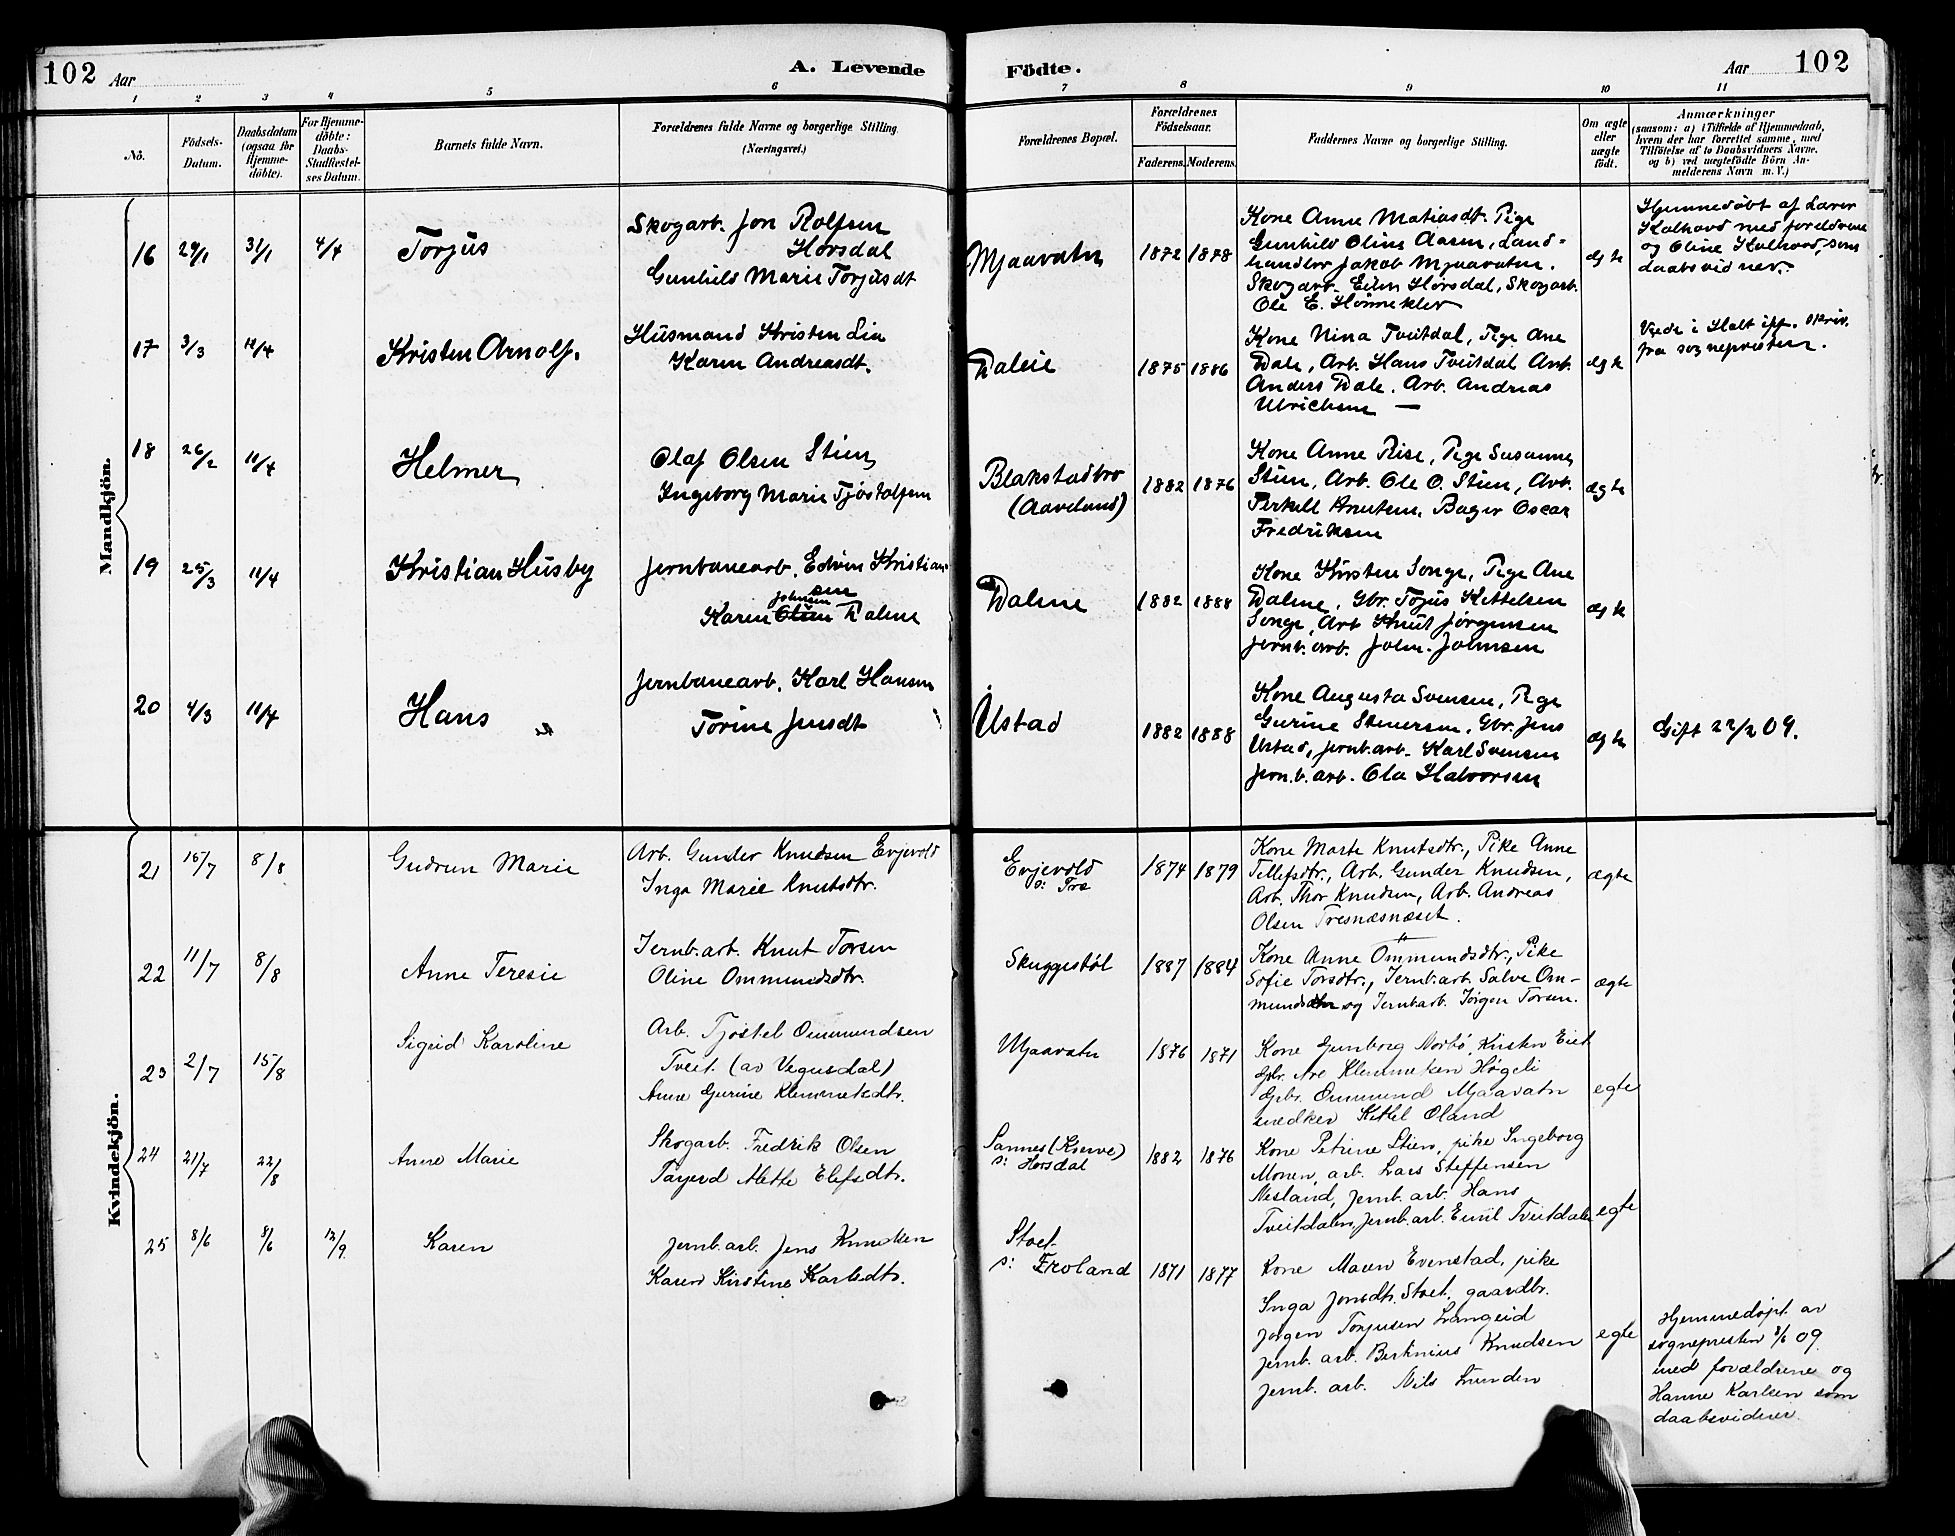 102 Aar A. Levende Födte. Aar 102
1 2 3 4 5 6 7 8 9 10 11
No. Födsels-Datum. Daabsdatum (ogsaa for Hjemme-döbte). For Hjemme-döbte: Daabs-Stadfæstel-ses Datum. Barnets fulde Navn. Forældrenes fulde Navne og borgerlige Stilling (Næringsvei.) Forældrenes Bopæl. Forældrenes Födselsaar. Faderens. Moderens. Faddernes Navne og borgerlige Stilling. Om ægte eller uægte födt. Anmærkninger (saasom: a) i Tilfælde af Hjemmedaab, hvem der har forrettet samme, med Tilföielse af to Daabsvidners Navne. og b) ved uægtefödte Börn An-melderens Navn m. V.)
Mandkjön.
16 29/1 31/1 4/4 Torjus
Skogarb. Jon Rolfsen
Horsdal
Gunhild Marie Torjusdt
Mjaavatn 1872 1878
Kone Anne Matiasdt. Pige
Gunhild Oline Aasen, Land-
handler Jakob Mjaavatn.
Skogarb. Eilen Horsdal, Skogarb.
Ole E. Hønneklev
ægte
Hjemmedøbt af Lærer
Kalhovd med foreldrene
og Oline Kalhovd, som
daabsvidner.
17 3/3 11/4 Kristen Arnolf.
Husmand Kristen Lia
Karen Andreasdt.
Daleie 1875 1886
Kone Nina Tveitdal, Pige Ane
Dale, Arb. Hans Tveitdal Arb.
Anders Dale, Arb. Andreas
Ulrichsen —
ægte
i Holt iff. skriv.
fra sognepresten.
18 26/2 11/4 Helmer
Olaf Olsen Stien
Ingeborg Marie Tjøstolfsen
Blakstadbro
(Aavelund) 1882 1876
Kone Anne Rise, Pige Susanne
Stien, Arb. Ole O. Stien, Arb.
Terkell Knutsen, Bager Oscar
Fredriksen
ægte
19 25/3 11/4 Kristian Husby
Jernbanearb. Edvin Kristian-
sen
Johnsen
Karen Olsen Dalene
Dalene 1882 1888
Kone Kirsten Songe, Pige Ane
Dalene, Gbr. Tojus Kettelsen
Songe, Arb Knut Jørgensen
Jernb. arb. John. Johnsen
ægte
20 4/3 11/4 Hans
Jernbanearb. Karl Hansen
Torine Jensdt
Ustad 1882 1888
Kone Augusta Svensen, Pige
Gurine Stenersen, Gbr. Jens
Ustad, Jernb.arb. Karl Svensen
Jern.b. arb. Ola Halvorsen
ægte
Gift 22/2 09.
Kvindekjön.
21 15/7 8/8 Gudrun Marie
Arb. Gunder Knudsen Evjevold
Inga Marie Knutsdtr.
Evjevold
s: Fre 1874 1879
Kone Marte Knutsdtr., Pike Anne
Tellefsdtr., Arb. Gunder Knudsen,
Arb. Thor Knudsen, Arb. Andreas
Olsen Tresnæsnæset.
ægte
22 11/7 8/8 Anne Teresie
Jernb.arb. Knut Torsen
Oline Ommundsdtr.
Skuggestøl 1887 1884
Kone Anne Ommundsdtr., Pike
Sofie Torsdtr., Jernb.arb. Salve Om-
munds og Jernb.arb. Jørgen Torsen.
ægte
23 2/7 15/8 Sigrid Karoline
Arb. Tjøstel Ommundsen
Tveit. (av Vegusdal)
Anne Gurine Klemmetsdtr.
Mjaavatn 1876 1871
Kone Gunborg Norbø, Kirsten Eiet
Gbr. Are Klemmetsen Høgeli
Gbr. Ommund Mjaavatn
snedker Kittel Oland
egte
24 21/7 22/8 Anne Marie
Skogarb. Fredrik Olsen
Targerd Mette Elefsdtr.
Sannes (Kserve)
s: Horsdal 1882 1876
Kone Petrine Stien, pike Ingeborg
Monen, arb. Lars Steffensen
Nesland, Jernb. arb. Hans
Tveitdalen, Jernb. arb. Emil Tveitdalen
egte
25 8/6 8/6 12/9 Karen
Jernb. arb. Jens Knudsen
Karen Kirstine Karlsdtr.
Stoet
s: Froland 1871 1877
Kone Maren Evenstad, pike
Inga Jonsdtr. Stoet, gaardbr.
Jørgen Torjusen Langeid
Jernb. arb. Bertinius Knudsen
Jernb. arb. Nils Lunden
egte
Hjemmedøpt av
sognepresten 8/6 09
med forældrene og
Hanne Karlsen som
daabsvidner.